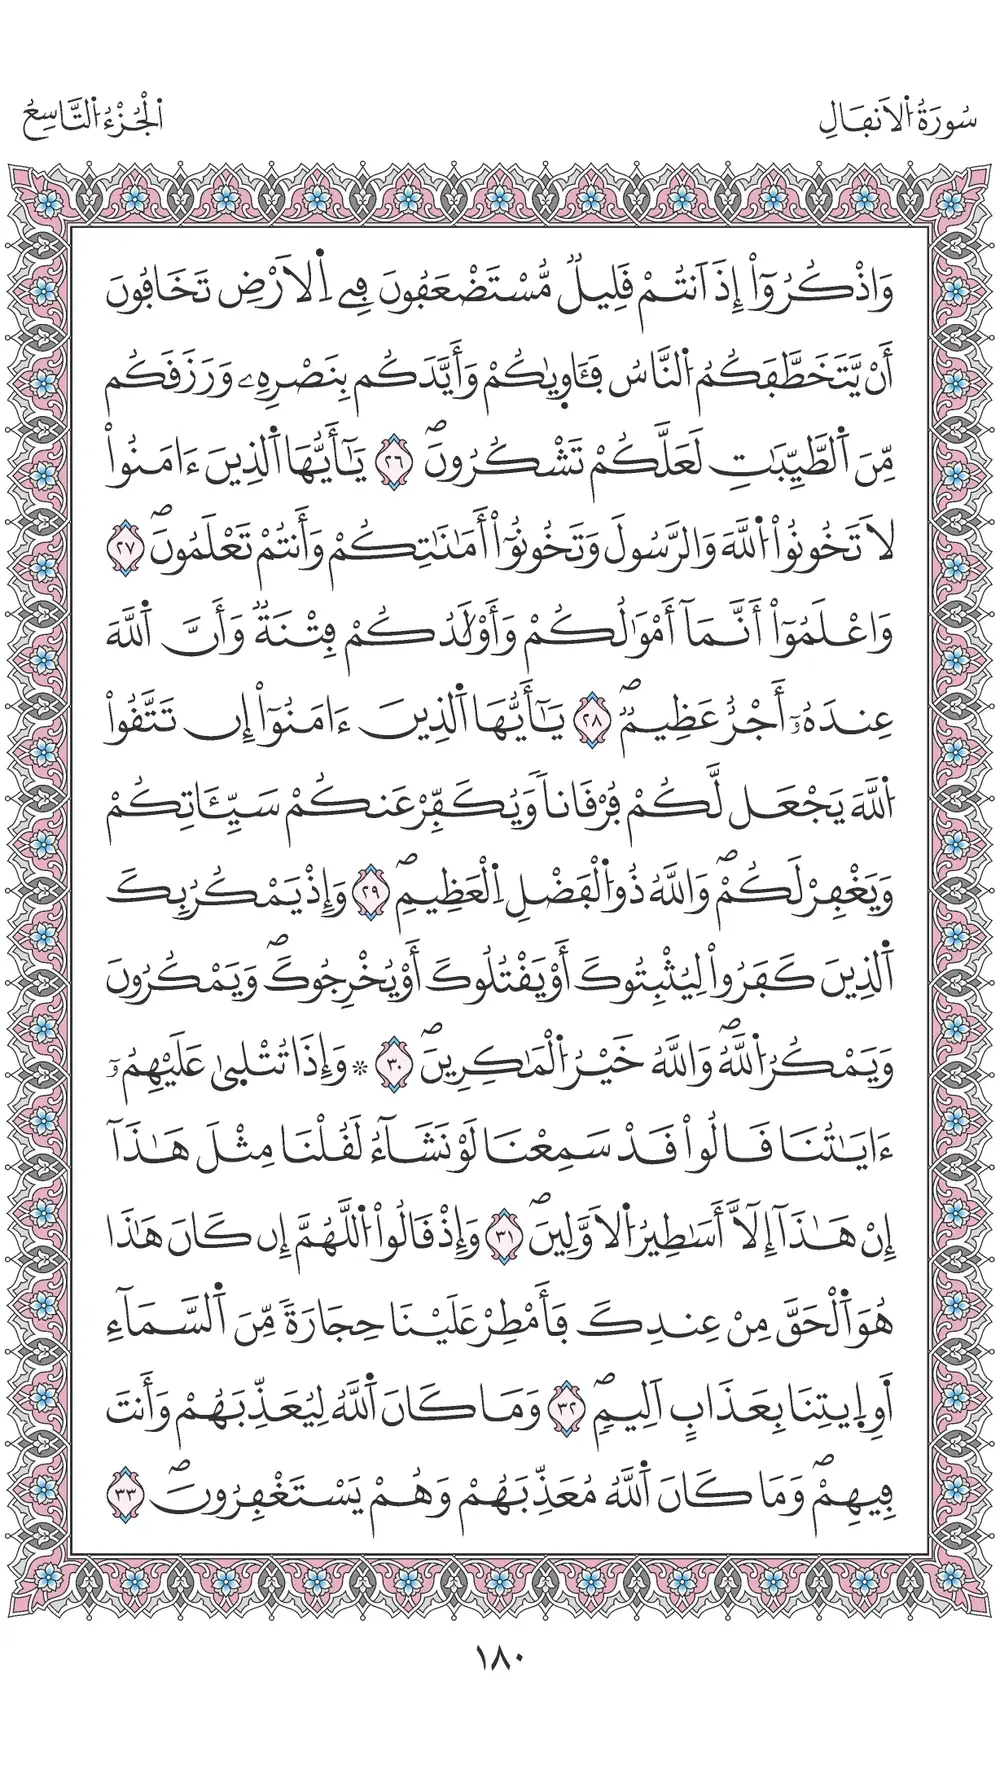 سُورَةُ الْأَنفَالِ
الْجُزْءُ التَّاسِعُ
وَاذْكُرُوٓاْ إِذَ اَنتُمْ قَلِيلٞ مُّسْتَضْعَفُونَ فِے اِ۬لَارْضِ تَخَافُونَ
أَنْ يَّتَخَطَّفَكُمُ اُ۬لنَّاسُ فَـَٔاو۪يٰكُمْ وَأَيَّدَكُم بِنَصْرِهِۦ وَرَزَقَكُم
مِّنَ اَ۬لطَّيِّبَٰتِ لَعَلَّكُمْ تَشْكُرُونَۖ ٢٦ يَٰٓأَيُّهَا اَ۬لذِينَ ءَامَنُواْ
لَا تَخُونُواْ اُ۬للَّهَ وَالرَّسُولَ وَتَخُونُوٓاْ أَمَٰنَٰتِكُمْ وَأَنتُمْ تَعْلَمُونَۖ ٢٧
وَاعْلَمُوٓاْ أَنَّمَآ أَمْوَٰلُكُمْ وَأَوْلَٰدُكُمْ فِتْنَةٞ وَأَنَّ اَ۬للَّهَ
عِندَهُۥٓ أَجْرٌ عَظِيمٞۖ ٢٨ يَٰٓأَيُّهَا اَ۬لذِينَ ءَامَنُوٓاْ إِن تَتَّقُواْ
اُ۬للَّهَ يَجْعَل لَّكُمْ فُرْقَاناٗ وَيُكَفِّرْ عَنكُمْ سَيِّـَٔاتِكُمْ
وَيَغْفِرْ لَكُمْۖ وَاللَّهُ ذُو اُ۬لْفَضْلِ اِ۬لْعَظِيمِۖ ٢٩ وَإِذْ يَمْكُرُ بِكَ
اَ۬لذِينَ كَفَرُواْ لِيُثْبِتُوكَ أَوْ يَقْتُلُوكَ أَوْ يُخْرِجُوكَۖ وَيَمْكُرُونَ
وَيَمْكُرُ اُ۬للَّهُۖ وَاللَّهُ خَيْرُ اُ۬لْمَٰكِرِينَۖ ٣٠ ۞ وَإِذَا تُتْل۪يٰ عَلَيْهِمُۥٓ
ءَايَٰتُنَا قَالُواْ قَدْ سَمِعْنَا لَوْ نَشَآءُ لَقُلْنَا مِثْلَ هَٰذَآ
إِنْ هَٰذَآ إِلَّآ أَسَٰطِيرُ اُ۬لَاوَّلِينَۖ ٣١ وَإِذْ قَالُواْ اُ۬للَّهُمَّ إِن كَانَ هَٰذَا
هُوَ اَ۬لْحَقَّ مِنْ عِندِكَ فَأَمْطِرْ عَلَيْنَا حِجَارَةٗ مِّنَ اَ۬لسَّمَآءِ
أَوِ اِ۪يتِنَا بِعَذَابٍ اَلِيمٖۖ ٣٢ وَمَا كَانَ اَ۬للَّهُ لِيُعَذِّبَهُمْ وَأَنتَ
فِيهِمْۖ وَمَا كَانَ اَ۬للَّهُ مُعَذِّبَهُمْ وَهُمْ يَسْتَغْفِرُونَۖ ٣٣
١٨٠